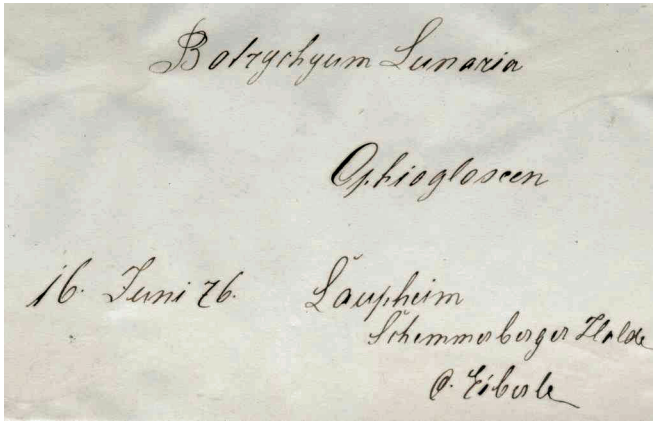 Botrychyum Lunaria
Ophiogloseen
16. Juni 76. Laupheim
Schemmerberger Halde
O. Eiberle